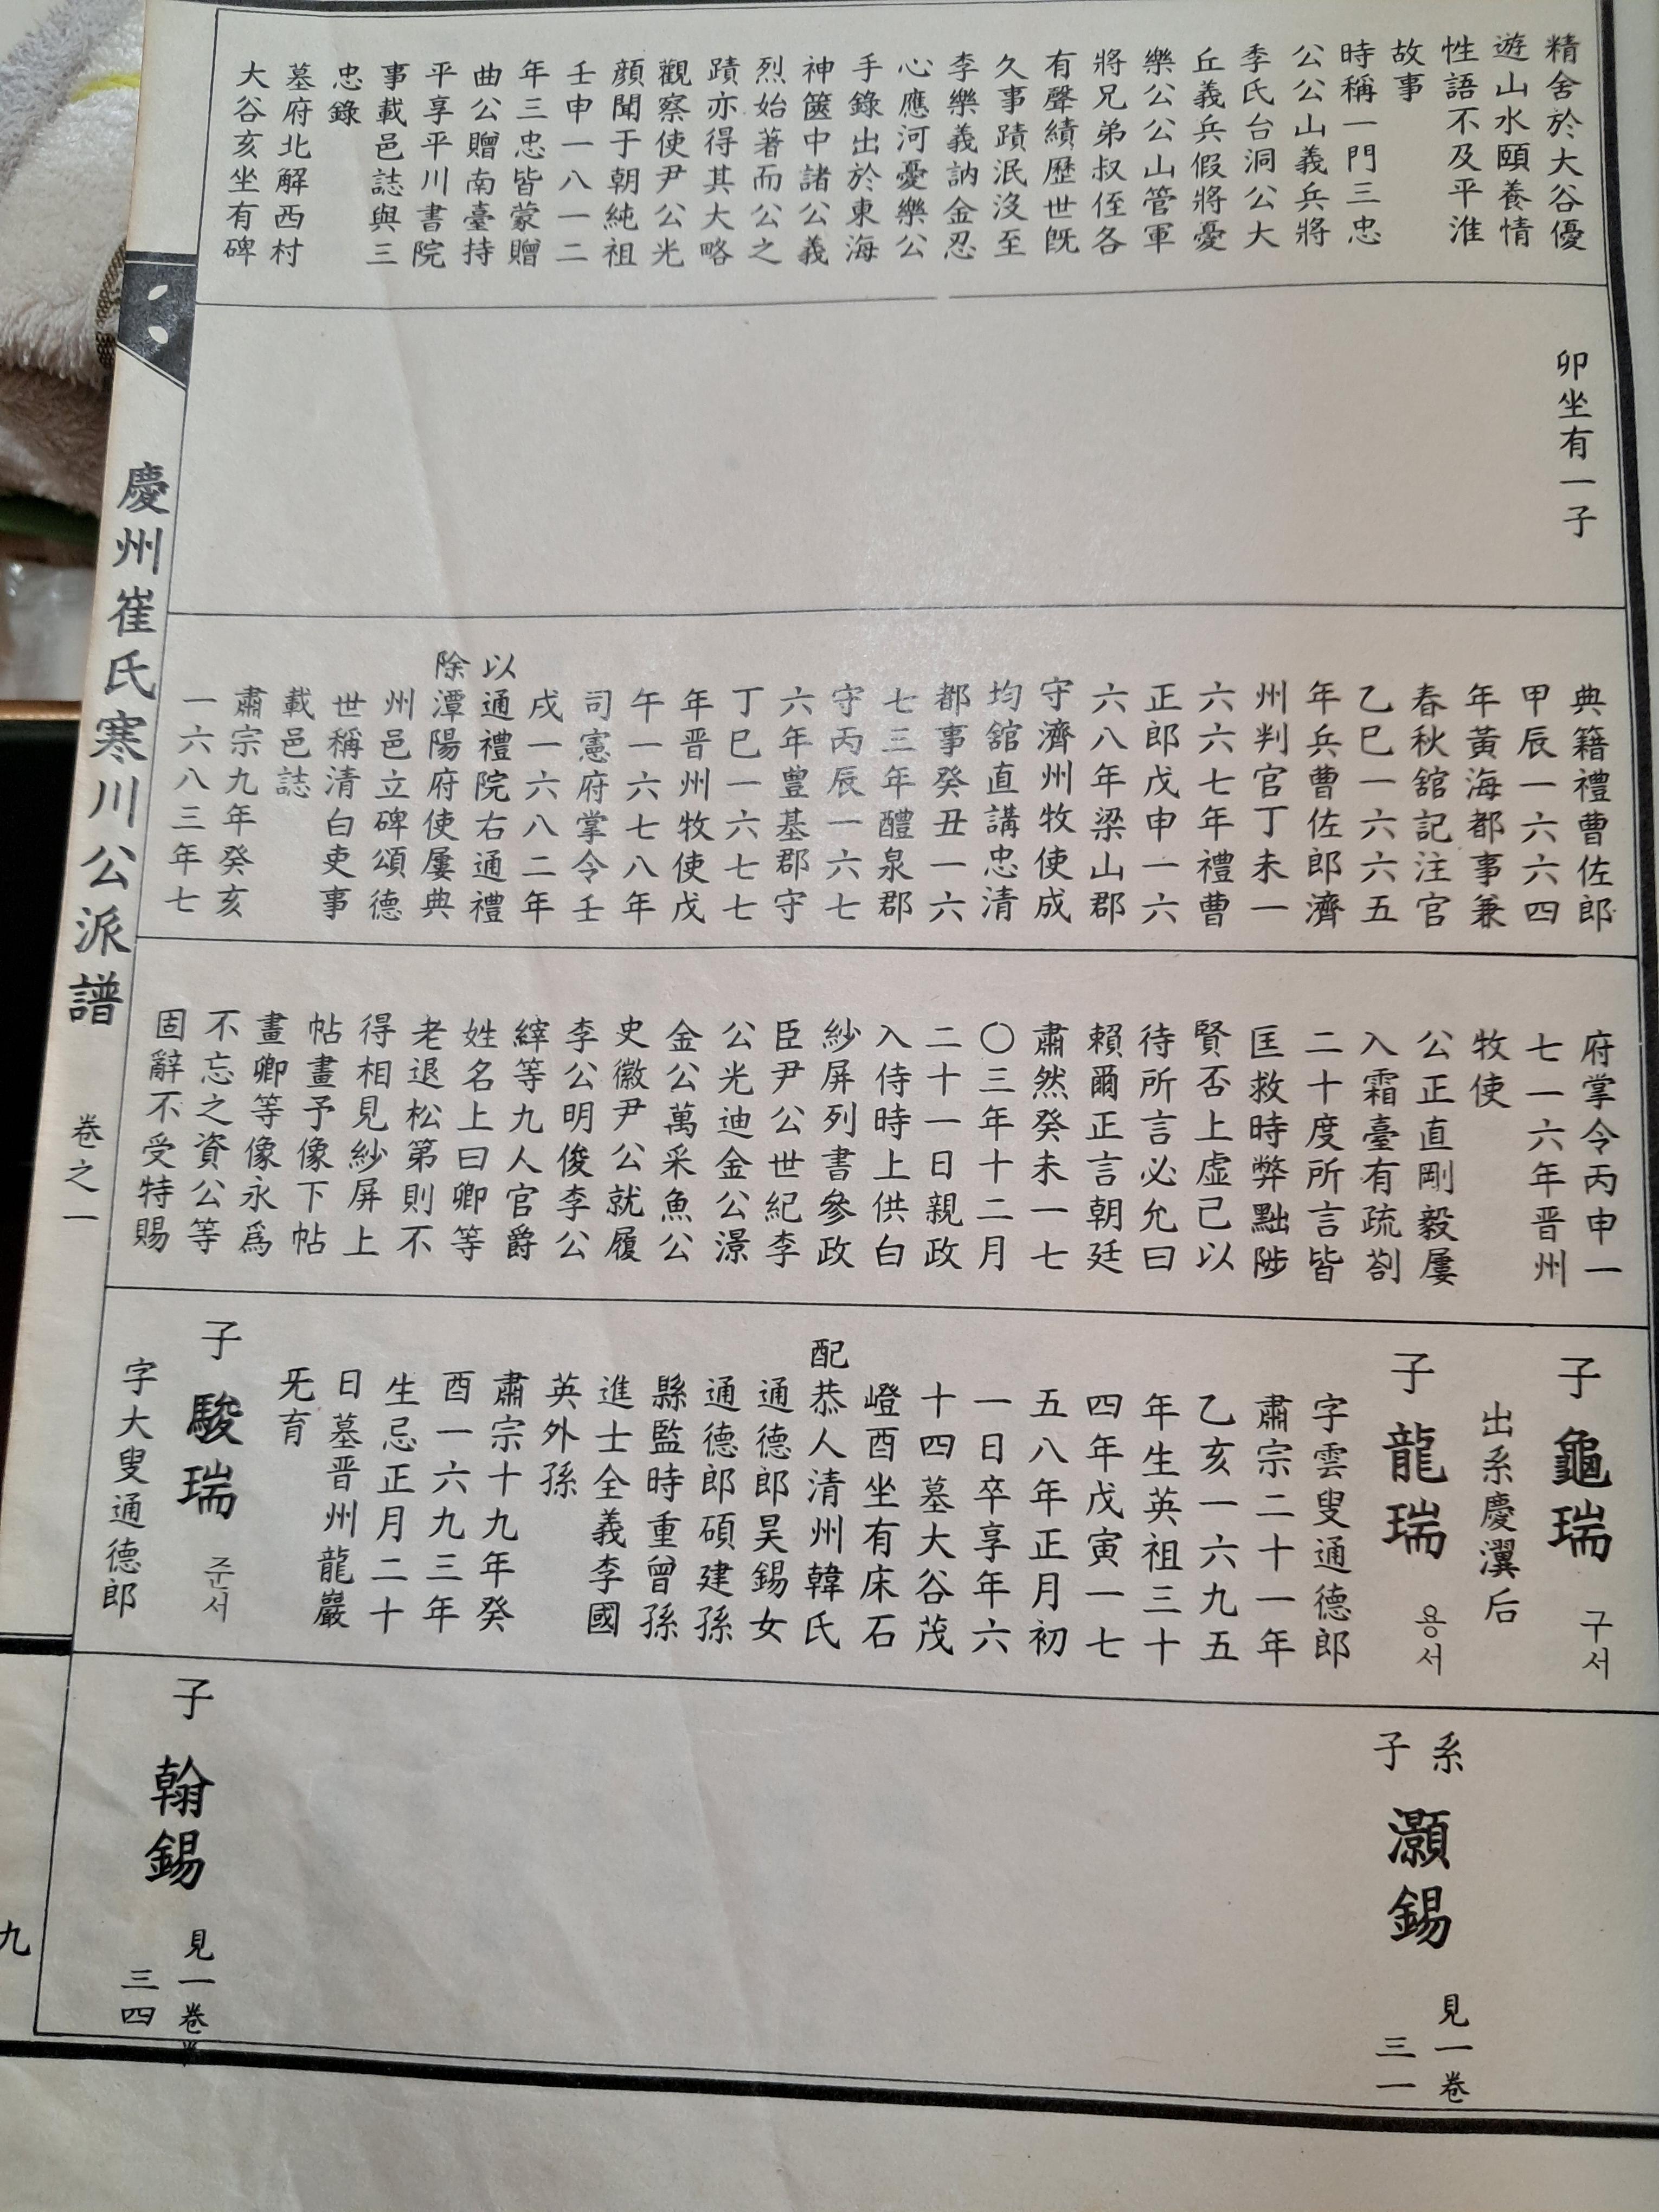 精舍於大谷優
遊山水頤養情
性語不及平淮
故事
時稱一門三忠
公公山義兵將
季氏台洞公大
丘義兵假將憂
樂公公山管軍
將兄弟叔侄各
有聲績歷世旣
久事蹟泯沒至
李樂義訥金忍
心應河憂樂公
手錄出於東海
神篋中諸公義
烈始著而公之
蹟亦得其大略
觀察使尹公光
顔聞于朝純祖
壬申一八一二
年三忠皆蒙贈
曲公贈南臺持
平享平川書院
事載邑誌與三
忠錄
墓府北解西村
大谷亥坐有碑
卯坐有一子
典籍禮曹佐郎
甲辰一六六四
年黃海都事兼
春秋舘記注官
乙巳一六六五
年兵曹佐郎濟
州判官丁未一
六六七年禮曹
正郎戊申一六
六八年梁山郡
守濟州牧使成
均舘直講忠清
都事癸丑一六
七三年醴泉郡
守丙辰一六七
六年豊基郡守
丁巳一六七七
年晋州牧使戊
午一六七八年
司憲府掌令壬
戌一六八二年
以通禮院右通禮
除潭陽府使屢典
州邑立碑頌德
世稱清白吏事
載邑誌
肅宗九年癸亥
一六八三年七
府掌令丙申一
七一六年晋州
牧使
公正直剛毅屢
入霜臺有疏劄
二十度所言皆
匡救時弊黜陟
賢否上虛己以
待所言必允曰
賴爾正言朝廷
肅然癸未一七
〇三年十二月
二十一日親政
入侍時上供白
紗屏列書參政
臣尹公世紀李
公光迪金公澋
金公萬采魚公
史徽尹公就履
李公明俊李公
縡等九人官爵
姓名上曰卿等
老退松第則不
得相見紗屏上
帖畫予像下帖
畫卿等像永爲
不忘之資公等
固辭不受特賜
子 龜瑞 구서
出系慶瀷后
子 龍瑞 용서
字雲叟通德郎
肅宗二十一年
乙亥一六九五
年生英祖三十
四年戊寅一七
五八年正月初
一日卒享年六
十四墓大谷茂
嶝酉坐有床石
配恭人清州韓氏
通德郎昊錫女
通德郎碩建孫
縣監時重曾孫
進士全義李國
英外孫
肅宗十九年癸
酉一六九三年
生忌正月二十
日墓晋州龍巖
旡育
子 駿瑞 준서
字大叟通德郎
系
子 灝錫
見一卷
三一
子 翰錫
見一卷
三四
慶州崔氏寒川公派譜 卷之一
九